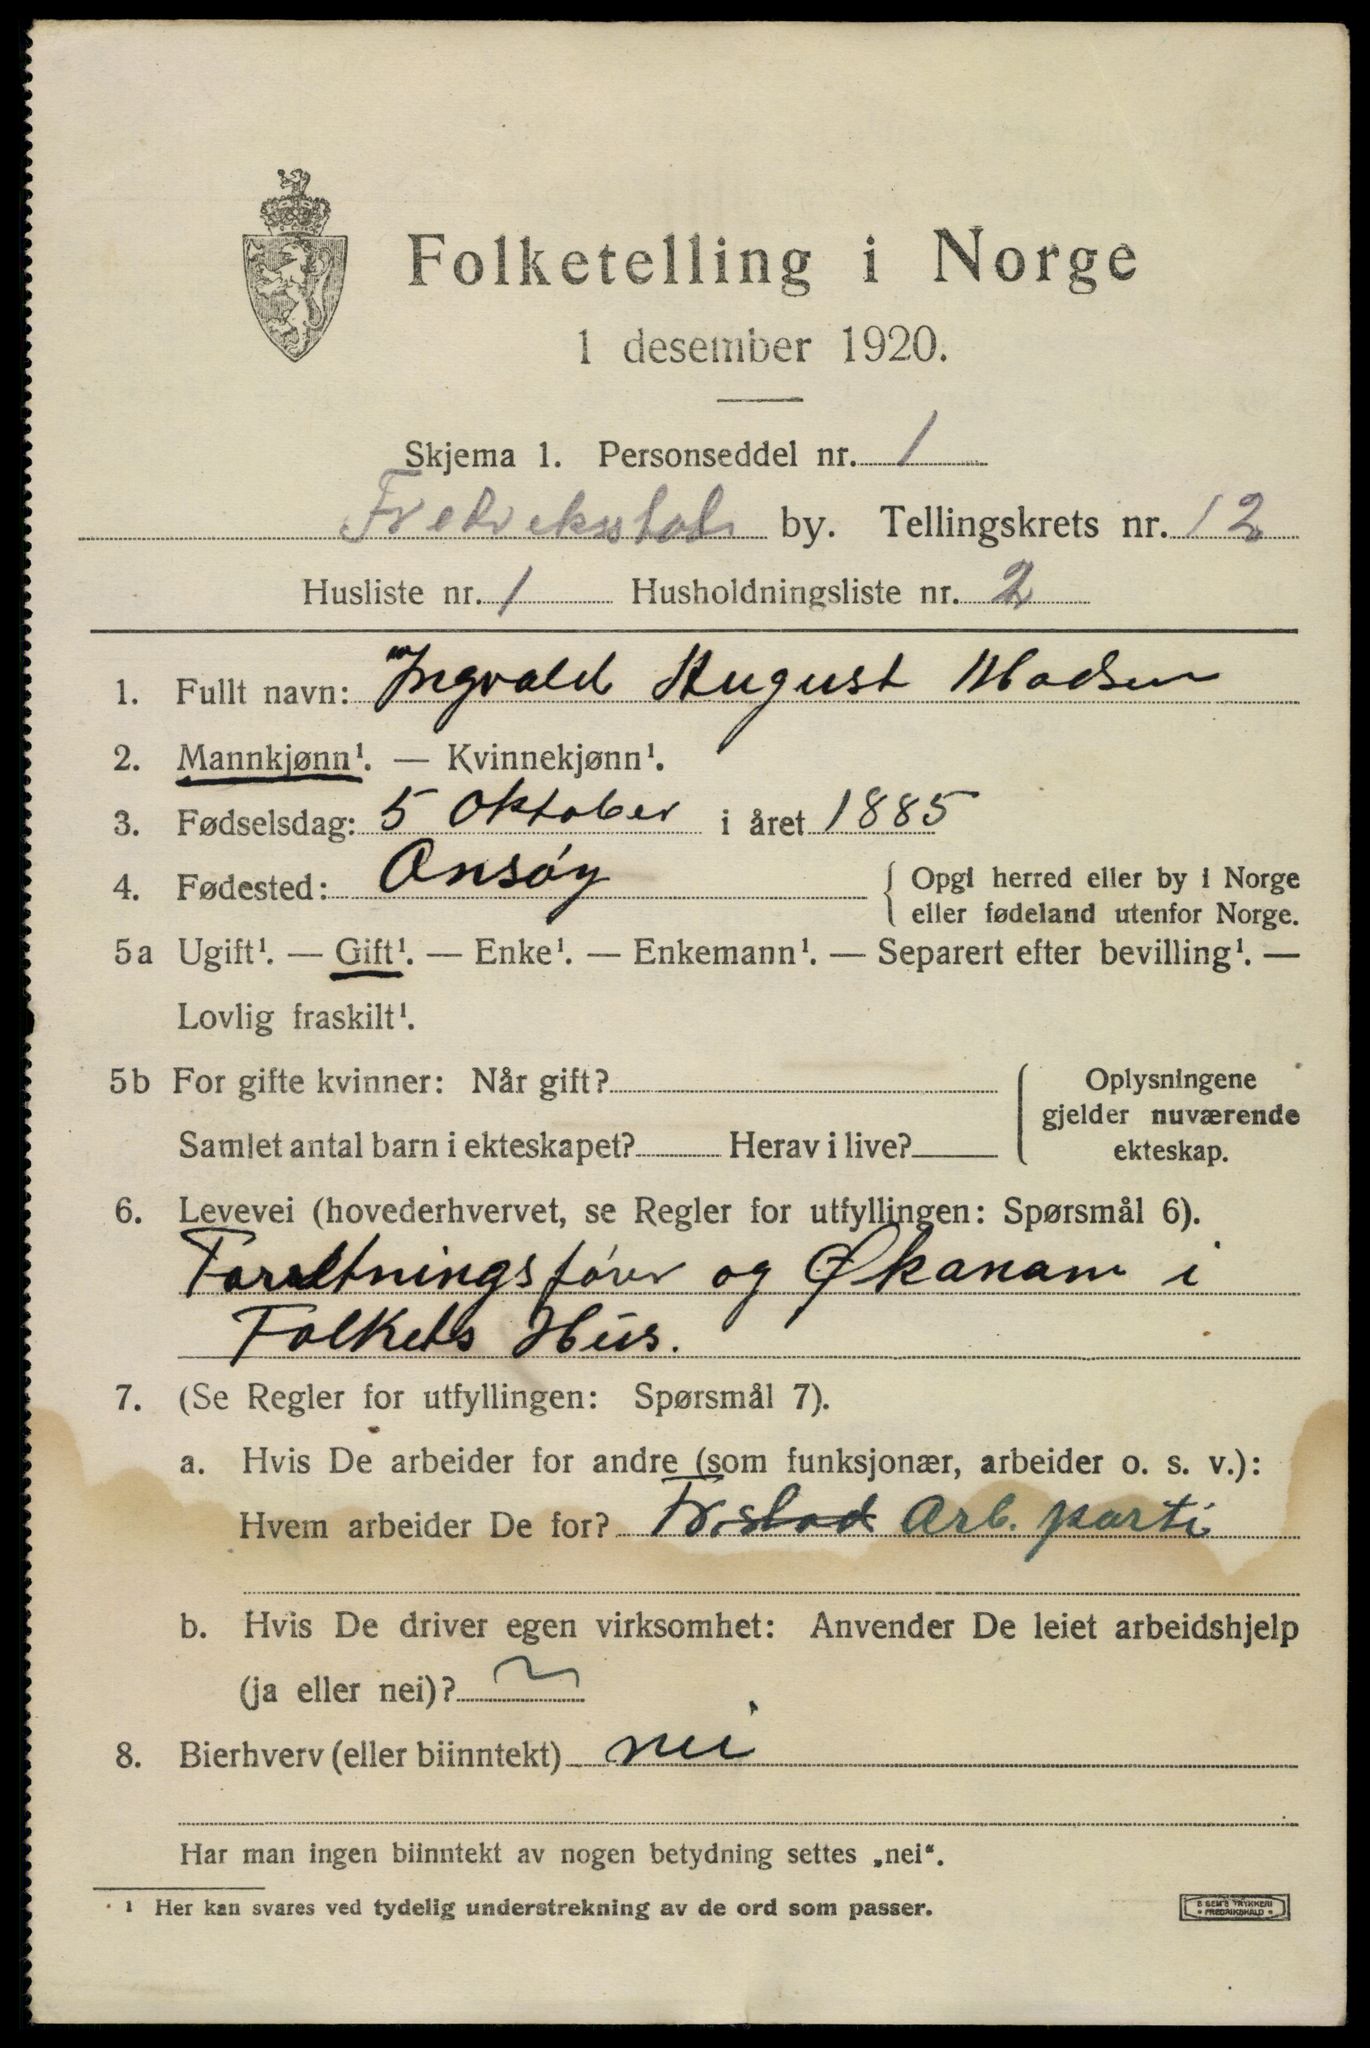 Folketelling i Norge
1 desember 1920.
Skjema 1. Personseddel nr. 1
Fredriksstad by. Tellingskrets nr. 12
Husliste nr. 1 Husholdningsliste nr. 2
1. Fullt navn: Ingvald August Madsen
2. Mannkjønn¹. — Kvinnekjønn¹.
3. Fødselsdag: 5 Oktober i året 1885
4. Fødested: Onsøy { Opgi herred eller by i Norge
eller fødeland utenfor Norge.
5a Ugift¹. — Gift¹. — Enke¹. — Enkemann¹. — Separert efter bevilling¹. —
Lovlig fraskilt¹.
5b For gifte kvinner: Når gift? { Oplysningene
gjelder nuværende
Samlet antal barn i ekteskapet? Herav i live? ekteskap.
6. Levevei (hovederhvervet, se Regler for utfyllingen: Spørsmål 6).
Forretningsfører og Økonom i
Folkets Hus.
7. (Se Regler for utfyllingen: Spørsmål 7).
a. Hvis De arbeider for andre (som funksjonær, arbeider o. s. v.):
Hvem arbeider De for? Fr.stad Arb. parti
b. Hvis De driver egen virksomhet: Anvender De leiet arbeidshjelp
(ja eller nei)?
8. Bierhverv (eller biinntekt) nei
Har man ingen biinntekt av nogen betydning settes „nei“.
¹ Her kan svares ved tydelig understrekning av de ord som passer.
E SEM'S TRYKKERI
FREDRIKSHALD